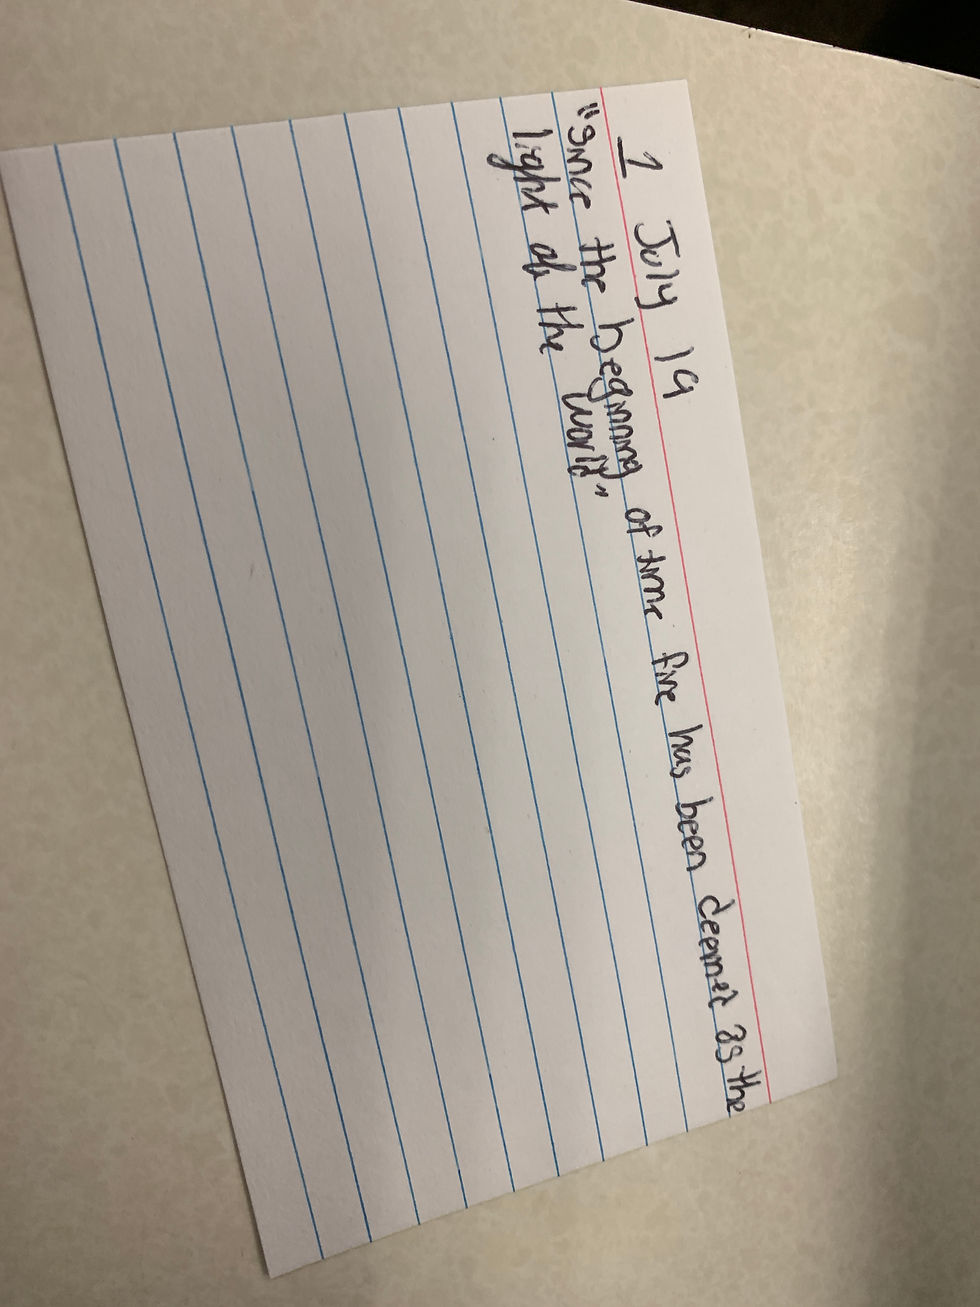 1 July 19
"Since the beginning of time fire has been deemed as the
light of the world"